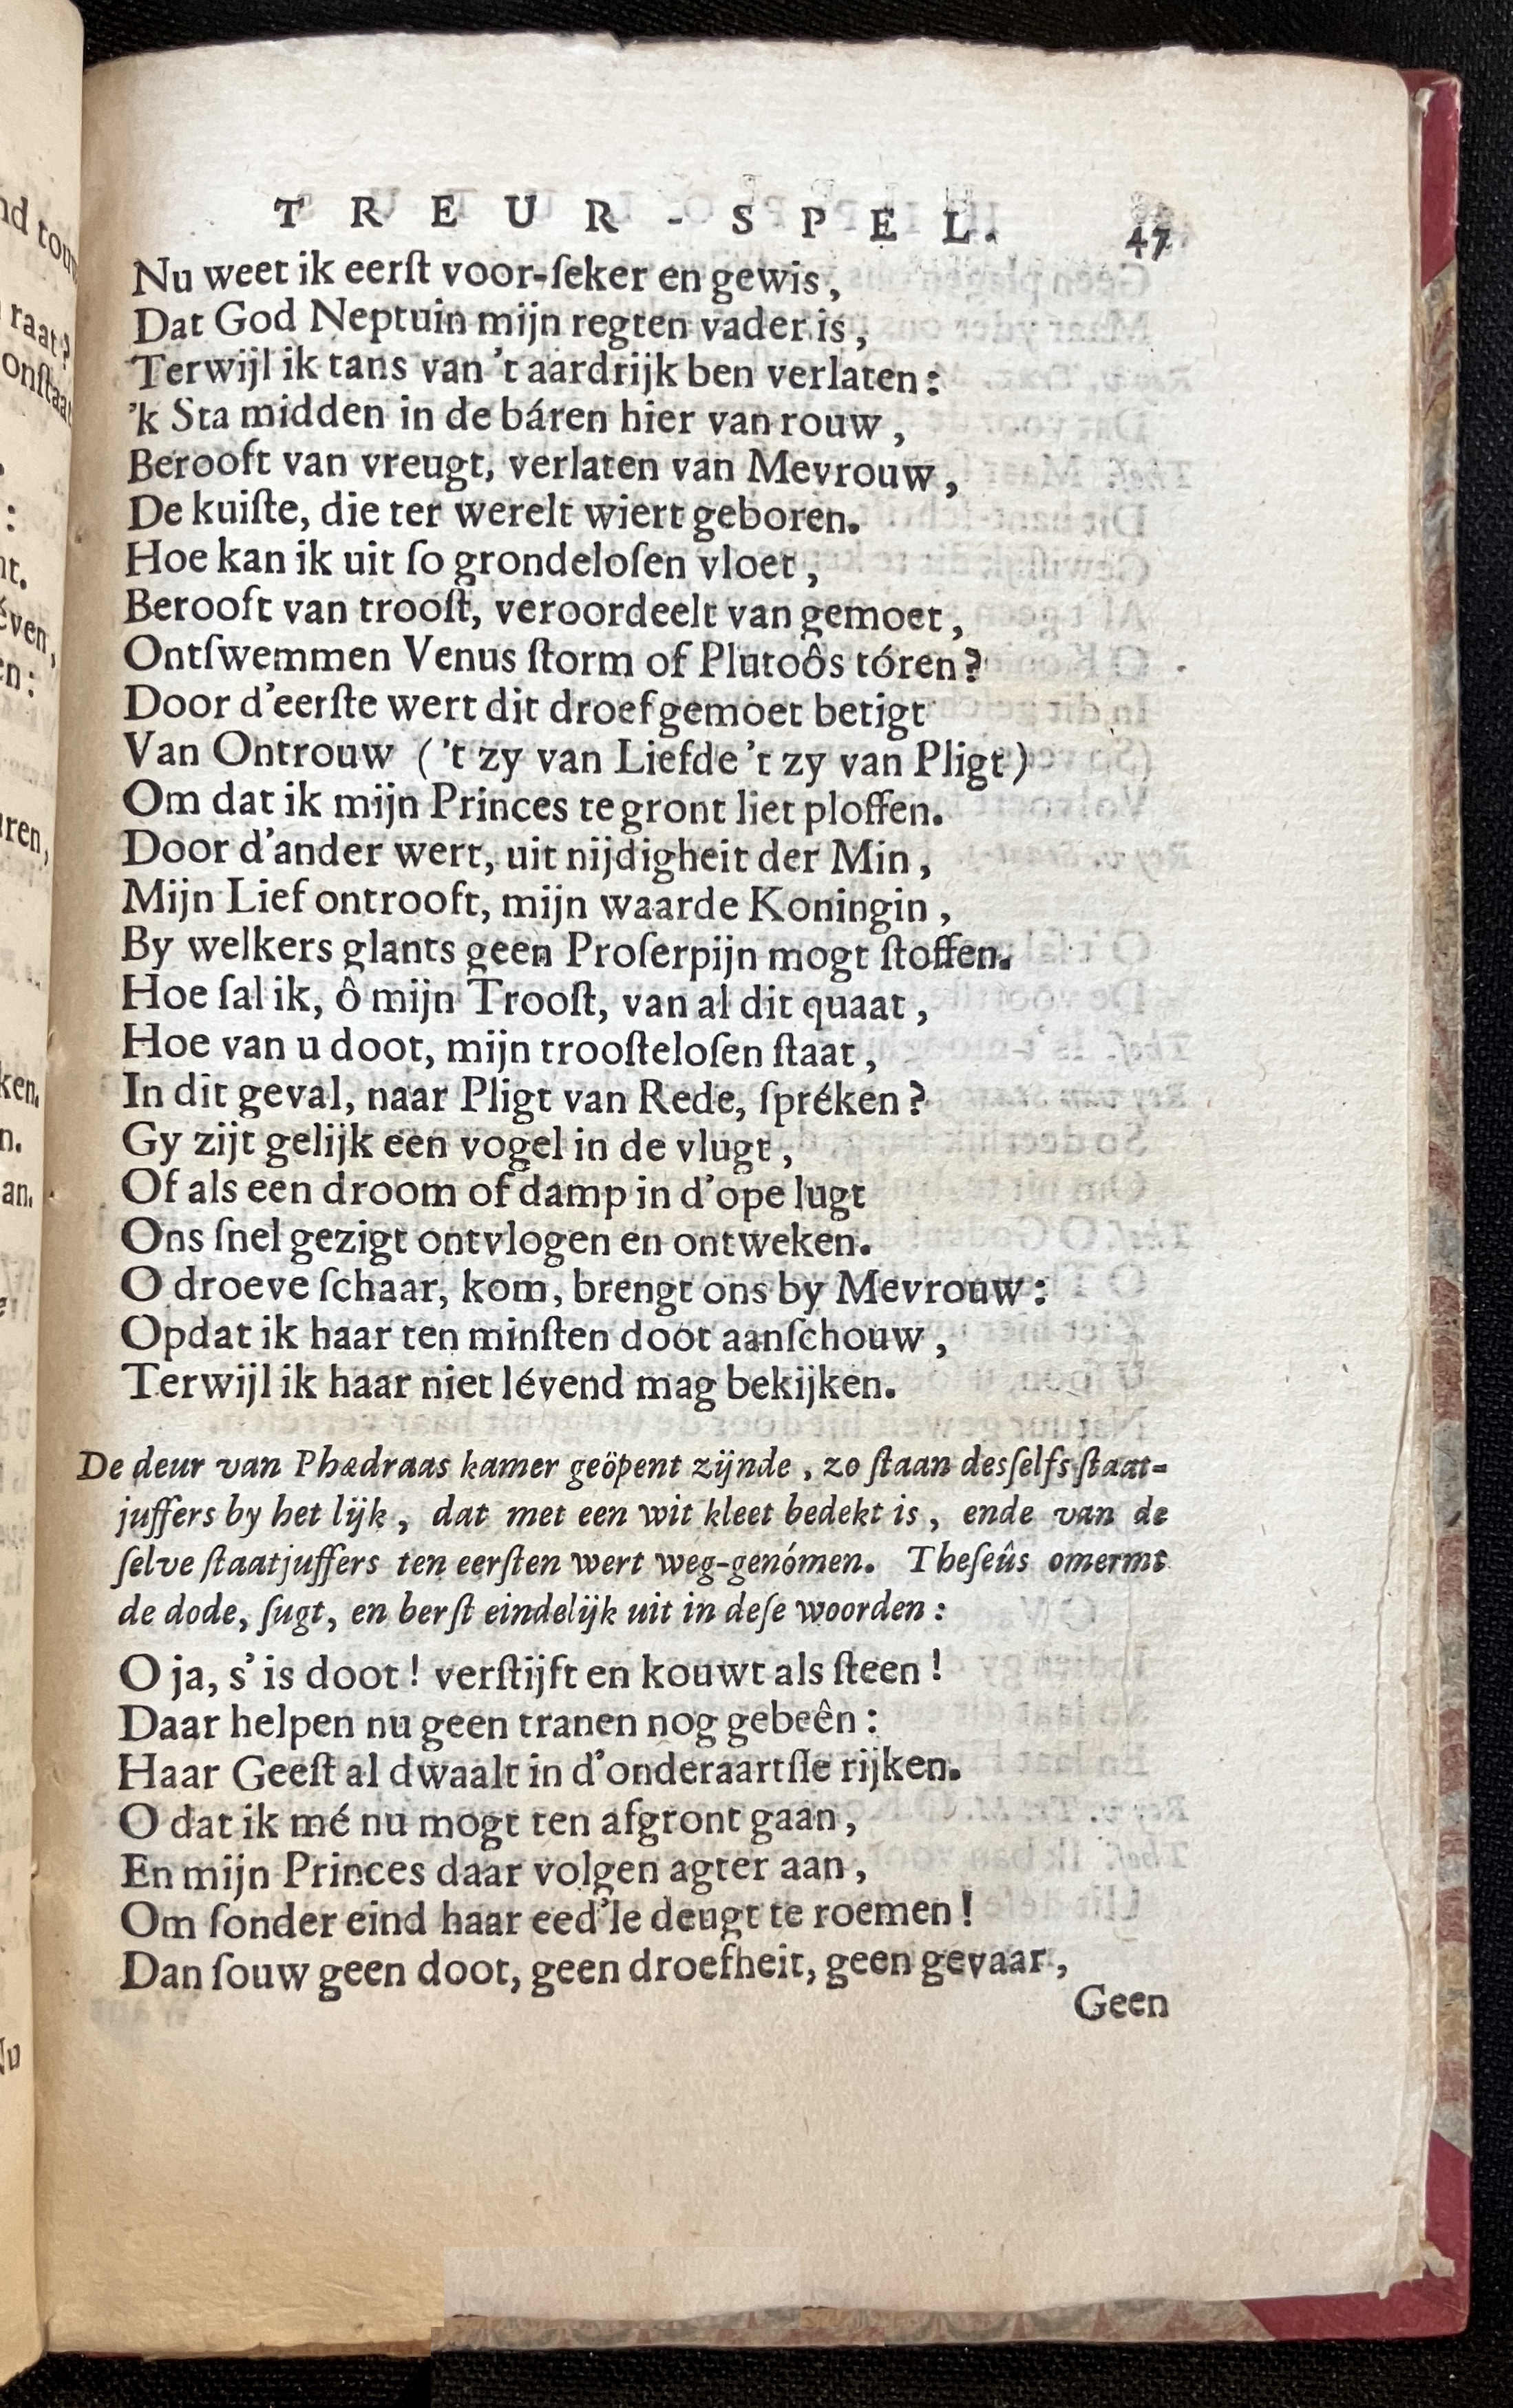 TREUR-SPEL. 47
Nu weet ik eerſt voor-ſeker en gewis,
Dat God Neptuin mijn regten vader is,
Terwijl ik tans van 't aardrijk ben verlaten:
'k Sta midden in de báren hier van rouw,
Berooft van vreugt, verlaten van Mevrouw,
De kuiſte, die ter werelt wiert geboren.
Hoe kan ik uit ſo grondeloſen vloet,
Berooft van trooſt, veroordeelt van gemoet,
Ontſwemmen Venus ſtorm of Plutoôs tóren?
Door d'eerſte wert dit droef gemoet betigt
Van Ontrouw ('t zy van Liefde 't zy van Pligt)
Om dat ik mijn Princes te gront liet ploffen.
Door d'ander wert, uit nijdigheit der Min,
Mijn Lief ontrooft, mijn waarde Koningin,
By welkers glants geen Proſerpijn mogt ſtoffen.
Hoe ſal ik, ô mijn Trooſt, van al dit quaat,
Hoe van u doot, mijn trooſteloſen ſtaat,
In dit geval, naar Pligt van Rede, ſpréken?
Gy zijt gelijk een vogel in de vlugt,
Of als een droom of damp in d'ope lugt
Ons ſnel gezigt ontvlogen en ontweken.
O droeve ſchaar, kom, brengt ons by Mevrouw:
Opdat ik haar ten minſten doot aanſchouw,
Terwijl ik haar niet lévend mag bekijken.
De deur van Phædraas kamer geöpent zijnde, zo ſtaan desſelfs ſtaat-
juffers by het lijk, dat met een wit kleet bedekt is, ende van de
ſelve ſtaatjuffers ten eerſten wert weg-genómen. Theſeûs omermt
de dode, ſugt, en berſt eindelijk uit in deſe woorden:
O ja, s' is doot! verſtijft en kouwt als ſteen!
Daar helpen nu geen tranen nog gebeên:
Haar Geeſt al dwaalt in d'onderaartſſe rijken.
O dat ik mé nu mogt ten afgront gaan,
En mijn Princes daar volgen agter aan,
Om ſonder eind haar eed'le deugt te roemen!
Dan ſouw geen doot, geen droefheit, geen gevaar,
Geen